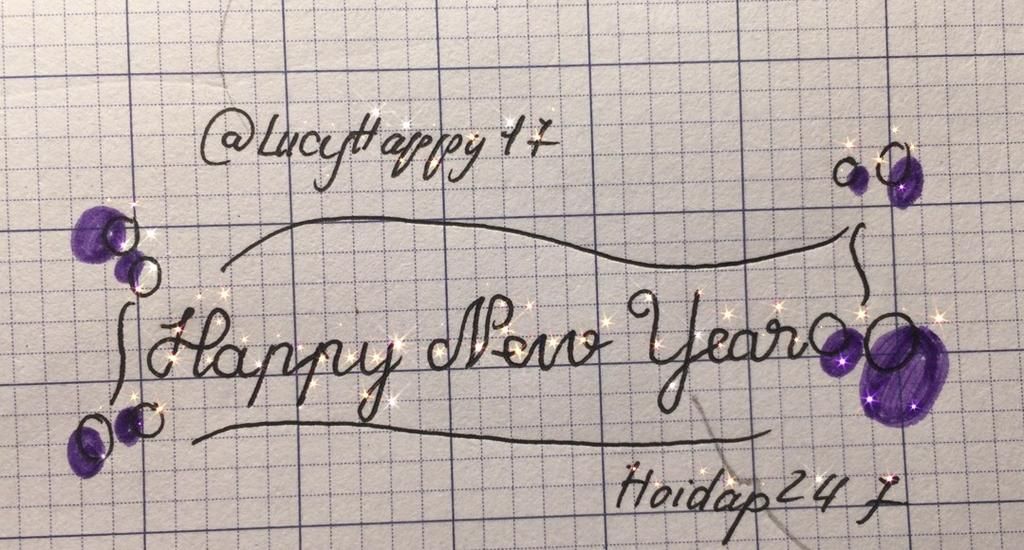 @LucyHappy17
Happy New Year
Hoidap247